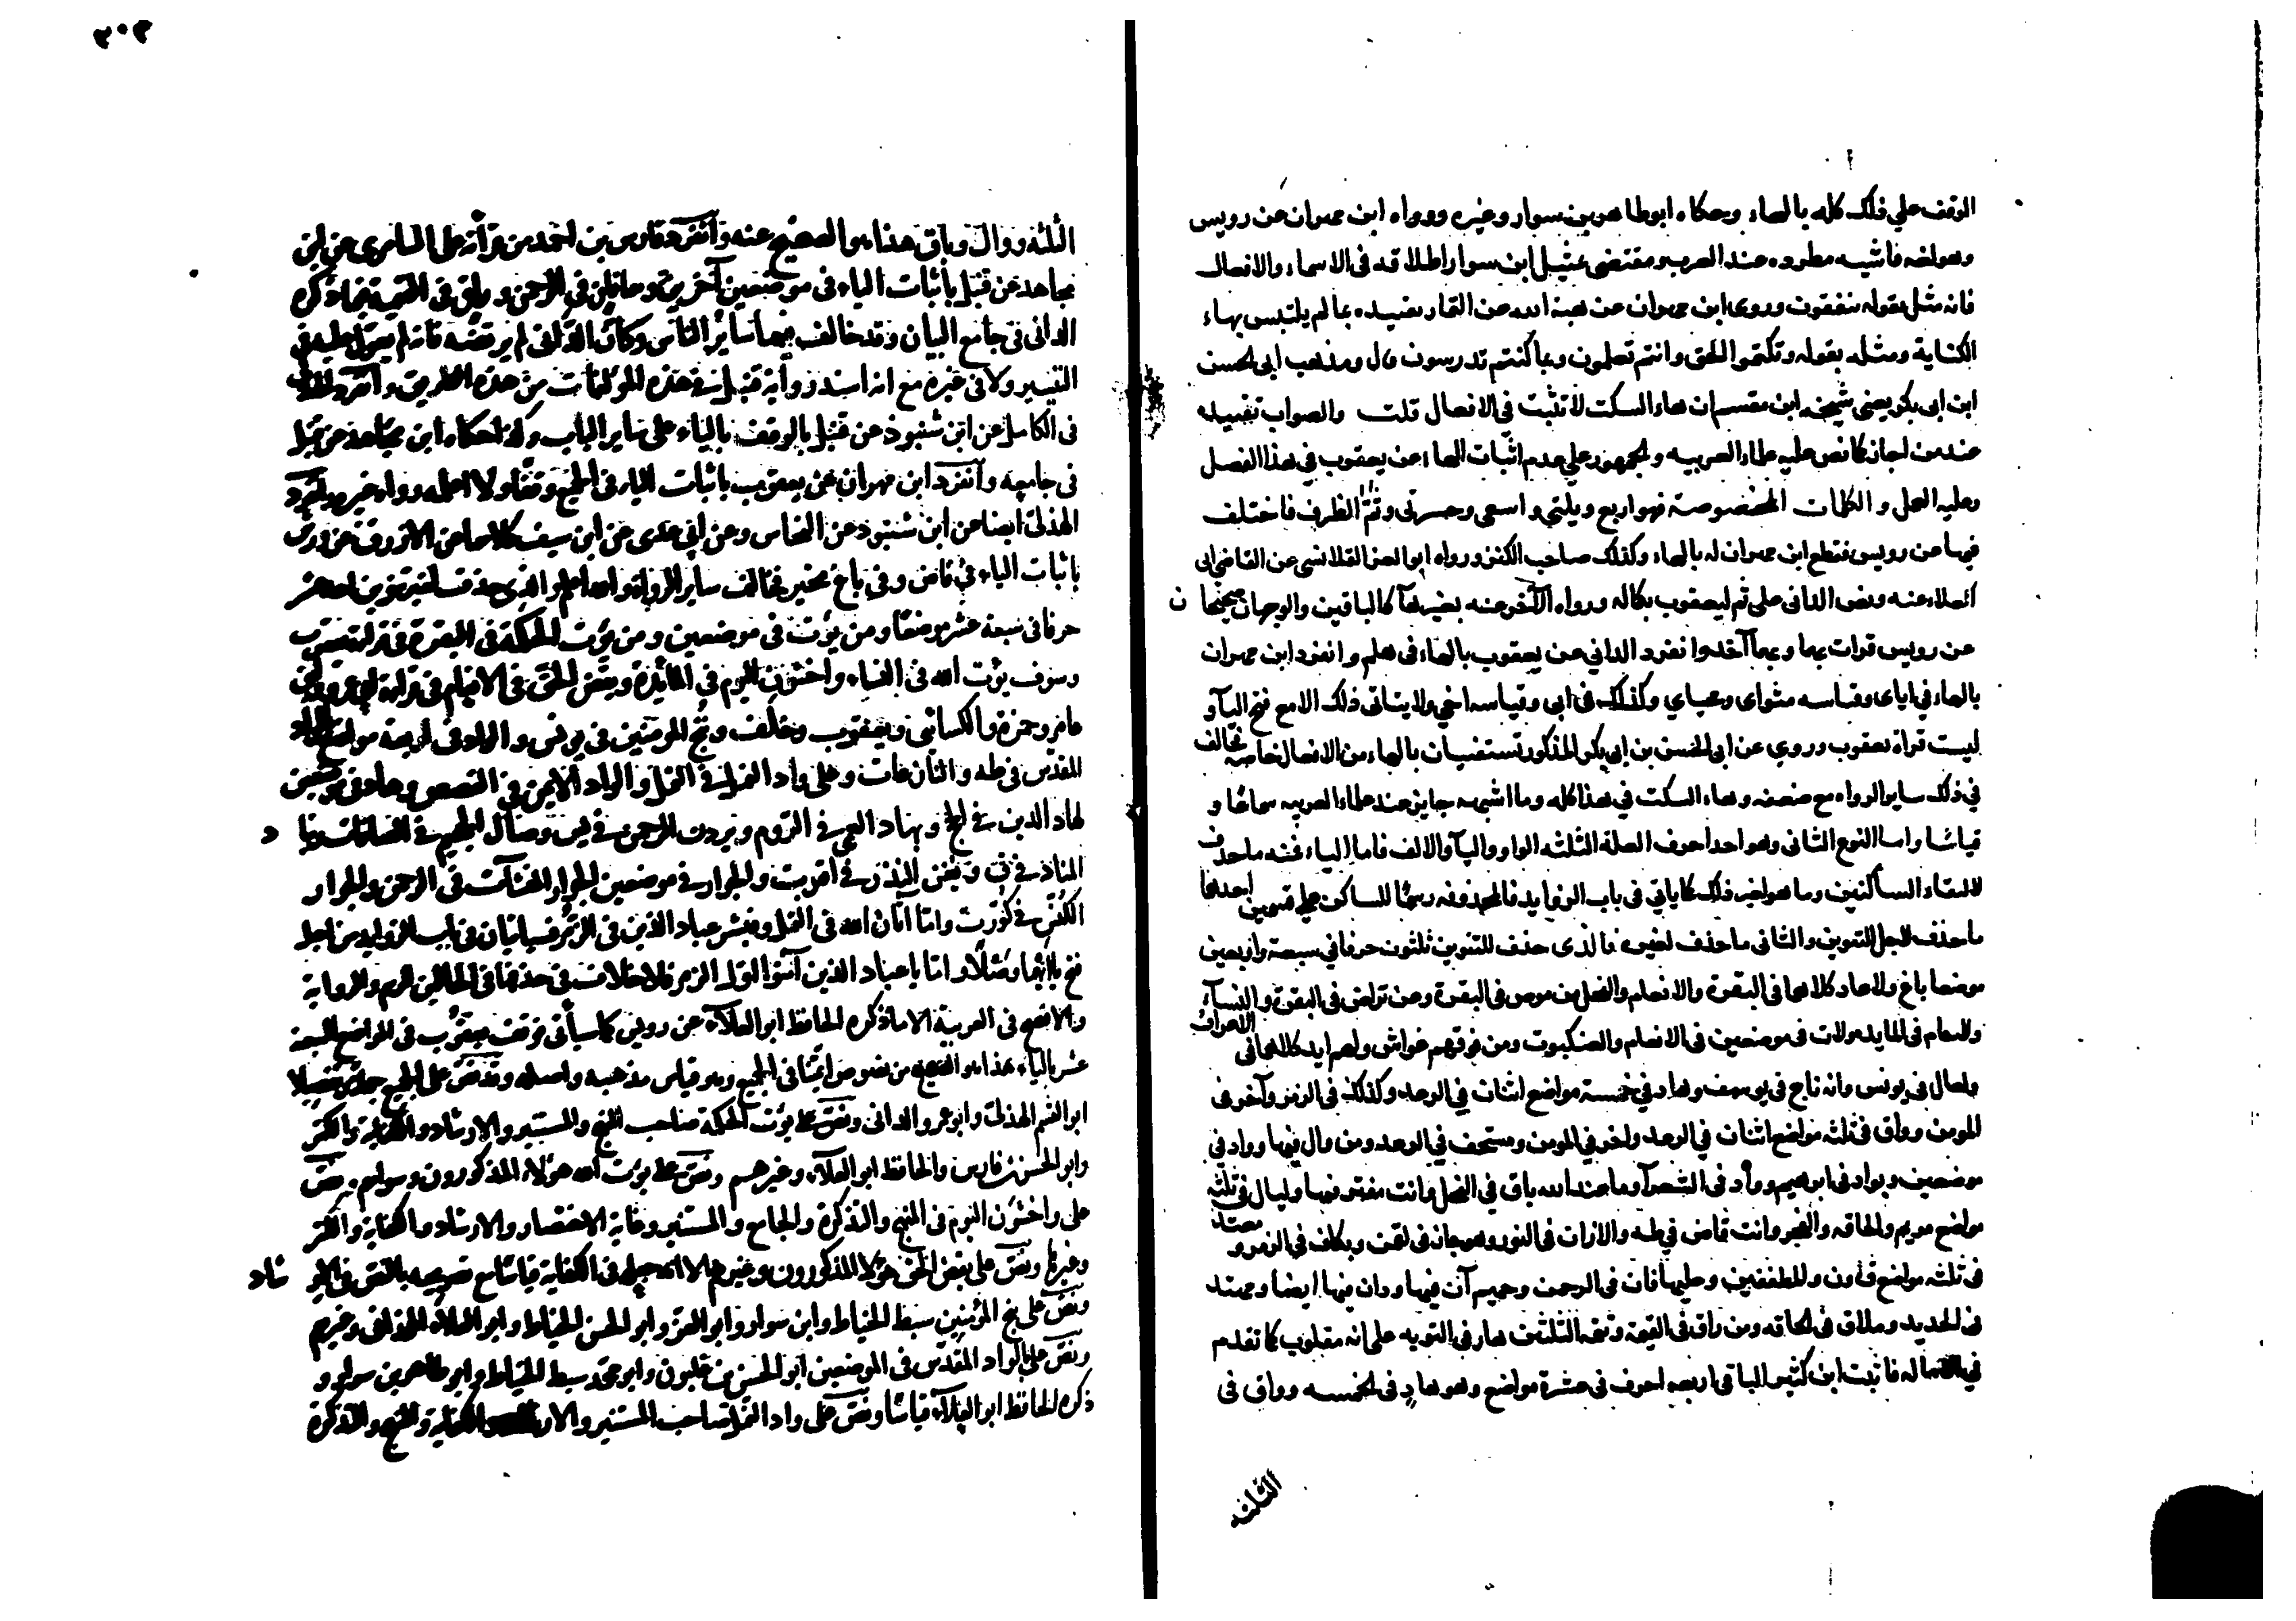 الوقف علي ذلك كله بالهاء وحكاه ابوطاهر بن سوار وغيره ورواه ابن مهران عن رويس
وهو لغه فاشيه مطرده عند العرب ومقتضى تمثيل ابن سوار اطلاقه فى الاسماء والافعال
فانه مثل بقوله ينفقون وروى ابن مهران عن هبة الله عن التمار تقييده بما لم يلتبس بهاء
الكناية ومثله بقوله وتكتموا الحق وانتم تعلمون وبما كنتم تدرسون قال ومذهب ابى الحسن
ابن ابى بكر يعنى شيخه ابن مقسم ان هاء السكت لا تثبت فى الافعال قلت والصواب تقييده
عند من اجازه كما نص عليه علماء العربيه والجمهور على عدم اثبات الهاء عن يعقوب فى هذا الفصل
وعليه العمل و الكلمات المخصوصة فهو اربع ويلتى و اسفى وحسرتى وثم الظرف فاختلف
فيها عن رويس فقطع ابن مهران له بالهاء وكذلك صاحب الكنز ورواه ابو العز القلانسى عن القاضى ابى
العلاء عنه ونص الدانى على ثم ليعقوب بكماله ورواه الآخرون عنه بغير هآ كالباقين والوجهان صحيحان
عن رويس قرات بهما وبهما آخذ وانفرد الدانى عن يعقوب بالهاء فى هلم وانفرد ابن مهران
بالهاء فى اياى وقياسه مثواى ومحياى وكذلك فى ابى وقياسه اخى ولا يتاتى ذلك الا مع فتح اليآ و
ليست قراة يعقوب وروي عن ابى الحسن بن ابى بكر المذكور تستفتيان بالهاء من الافعال خاصه فخالف
فى ذلك ساير الرواه مع ضعفه وهاء السكت فى هذا كله وما اشبهه جايز عند علماء العربيه سماعا و
قياسا واما النوع الثانى وهو احد احرف العلة الثلثه الواو واليآ والالف فاما الياء فمنه ما حذف
لالتقاء الساكنين وما هو لغير ذلك كما ياتى فى باب الزوايد فالمحذوفه رسمًا للساكن على قسمين احدهما
ما حذف لاجل التنوين والثانى ما حذف لغيره فالذى حذف للتنوين ثلثون حرفا فى سبعة واربعين
موضعا باغ ولا عاد كلاهما فى البقرة والانعام والنحل من موص فى البقرة وعن تراض فى البقرة والنسآء
ولا حام فى المايده ولات فى موضعين فى الانعام والعنكبوت ومن فوقهم غواش ولهم ايد كلاهما فى الاعراف
ولعال فى يونس وانه ناج فى يوسف وهاد فى خمسة مواضع اثنان فى الرعد وكذلك فى الزمر وآخر فى
المومن وواق فى ثلثه مواضع اثنان فى الرعد واخر فى المومن ومستخف فى الرعد ومن وال فيها وواد فى
موضعين وبواد فى ابراهيم وواد فى الشعرآ وما عند الله باق فى النحل وانت مفتر فيها وليال فى ثلثه
مواضع مريم والحاقه والفجر وانت قاض فى طه والازان فى النور وهو جاز فى لقمن وبكاف فى الزمر و معتد
فى ثلثه مواضع ق ون والمطففين وعليها فان فى الرحمن وحميم آن فيها ودان فيها ايضا ومهتد
فى الحديد وملاق فى الحاقه ومن راق فى القيمة وتتمه الثلثين هار فى التوبه على انه مقلوب كما تقدم
فى الاماله فاثبت ابن كثير الياء فى اربعه احرف فى عشرة مواضع وهو هادٍ فى الخمسه وواق فى
الثلثه
٢٠٢
الثلثه ووال وباق هذا هو الصحيح عنه وانفرد فارس بن احمد من قرأته على السامرى عن ابن
مجاهد عن قنبل باثبات الياء فى موضعين آخرين وهما فان فى الرحمن وراق فى القيمة فيما ذكره
الدانى فى جامع البيان وقد خالف فيهما سائر الناس وكأن الدانى لم يرتضه فانه لم يعول عليه فى
التيسير ولا فى غيره مع انه اسند رواية قنبل فى هذه المولفات من هذه الطريق وانفرد الهذلى
فى الكامل عن ابن شنبوذ عن قنبل بالوقف بالياء على سائر الباب وكذا حكاه ابن مجاهد عن قنبل
فى جامعه وانفرد ابن مهران عن يعقوب باثبات الياء فى الجميع وقفًا ولا اعلمه رواه غيره وانفرد
الهذلى ايضا عن ابن شنبوذ عن النحاس وعن ابى عدى عن ابن سيف كلاهما عن الازرق عن ورش
باثبات الياء فى قاض وفى باغ مخير فخالف ساير الرواة والله اعلم والذى حذف لغير تنوين احد عشر
حرفا فى سبعة عشر موضعًا ومن يؤت فى موضعين ومن يؤت الحكمة فى البقرة فى قراءة يعقوب
وسوف يؤت الله فى النساء واخشون اليوم فى المائدة ويقض الحق فى الانعام فى قراءة ابى عمرو وابن
عامر وحمزة والكسائى ويعقوب وخلف وننج المومنين فى يونس والواد فى اربعة مواضع بالواد
المقدس فى طه والنازعات وعلى واد النمل فى النمل والواد الايمن فى القصص وهاد فى موضعين
لهاد الذين فى الحج وبهاد العمى فى الروم ويردن الرحمن فى يس وصال الجحيم فى الصافات وينا د
المناد فى ق وتغن النذر فى اقتربت والجوار فى موضعين الجوار المنشآت فى الرحمن والجوار
الكنس فى كورت واما آتان الله فى النمل وفبشر عباد الذين فى الزمر فسياتيان فى باب الزوايد من اجل
فتح يائهما وصلًا واما ياعباد الذين آمنوا اول الزمر فلا خلاف فى حذفها فى الحالين للرسم والرواية
والافصح فى العربية الا ما ذكره الحافظ ابو العلآء عن رويس كما سيأتى فوقف يعقوب فى المواضع السبعة
عشر بالياء هذا هو الصحيح من نصوص ائمتنا فى الجميع وهو قياس مذهبه واصله وقد نص على الجميع جملة وتفصيلا
ابو القسم الهذلى وابو عمرو الدانى ونص على يؤت الحكمة صاحب المبهج والمستنير والارشاد والكفاية والكنز
وابو الحسن بن فارس والحافظ ابو العلآء وغيرهم ونص على يؤت الله هؤلاء المذكورون وسواهم ونص
على واخشون اليوم فى المبهج والتذكرة والجامع والمستنير وغاية الاختصار والارشاد والكفاية والكنز
وغيرها ونص على يقض الحق هؤلا المذكورون وغيرهم الا انه جعله فى الكفاية قياسًا مع تصريحه بالنص فى الار شاد
ونص على ننج المؤمنين سبط الخياط وابن سوار وابو العز وابو الحسن الخياط وابو العلاء الهمذانى وغيرهم
ونص على بالواد المقدس فى الموضعين ابو الحسن بن غلبون وابو محمد سبط الخياط وابو طاهر بن سوار و
ذكره الحافظ ابو العلآء قياسًا ونص على واد النمل صاحب المستنير والارشاد والكفاية والمبهج والتذكرة